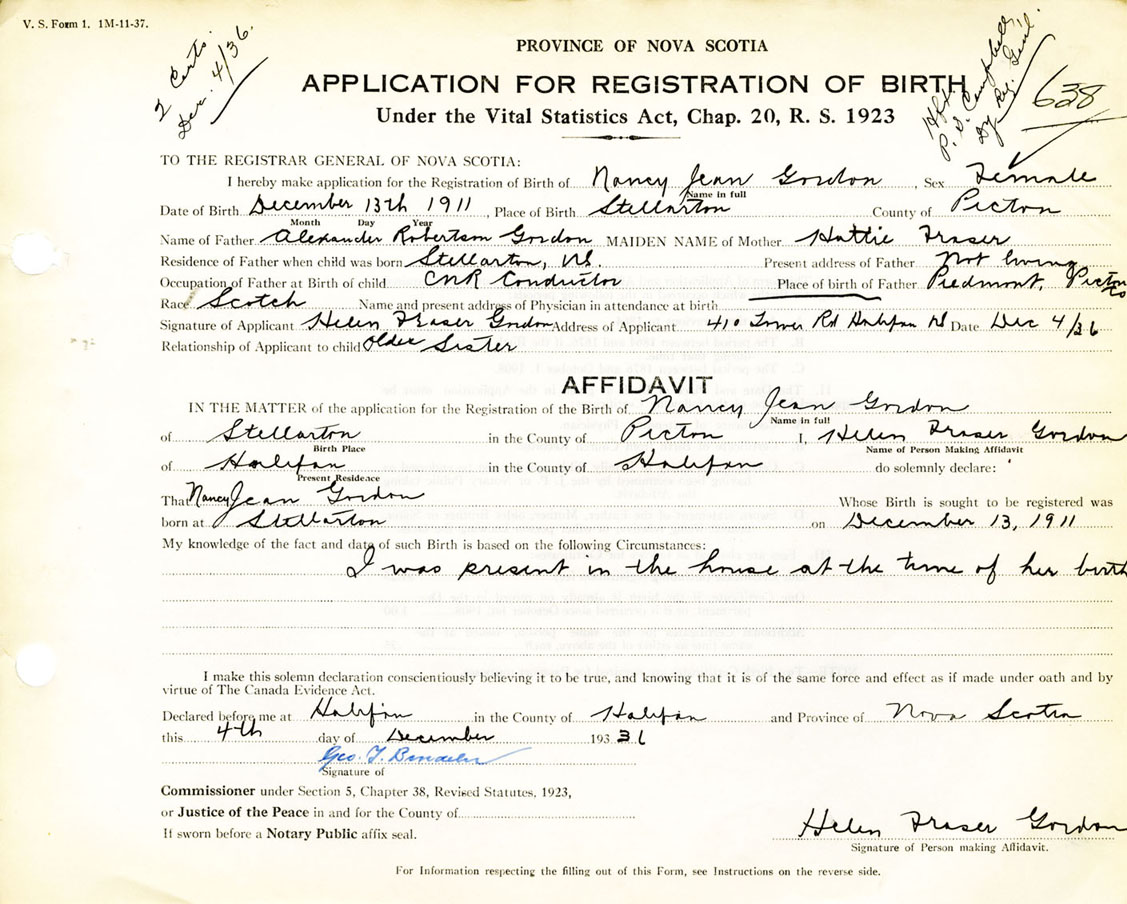 V. S. Form 1. 1M-11-37.
2 Certs.
Dec. 4/36.
P. S. Campbell
Dy Reg. Gen'l.
638
PROVINCE OF NOVA SCOTIA
APPLICATION FOR REGISTRATION OF BIRTH
Under the Vital Statistics Act, Chap. 20, R. S. 1923
TO THE REGISTRAR GENERAL OF NOVA SCOTIA:
I hereby make application for the Registration of Birth of Nancy Jean Gordon, Sex Female
Name in full
Date of Birth December 13th 1911, Place of Birth Stellarton County of Picton
Month Day Year
Name of Father Alexander Robertson Gordon MAIDEN NAME of Mother Hattie Fraser
Residence of Father when child was born Stellarton, N.S. Present address of Father Not living
Occupation of Father at Birth of child CNR Conductor Place of birth of Father Piedmont, Picton Co
Race Scotch Name and present address of Physician in attendance at birth
Signature of Applicant Helen Fraser Gordon Address of Applicant 410 Tower Rd Halifax NS Date Dec 4/36
Relationship of Applicant to child Older Sister
AFFIDAVIT
IN THE MATTER of the application for the Registration of the Birth of Nancy Jean Gordon
Name in full
of Stellarton in the County of Picton I, Helen Fraser Gordon
Birth Place Name of Person Making Affidavit
of Halifax in the County of Halifax do solemnly declare:
Present Residence
That Nancy Jean Gordon Whose Birth is sought to be registered was
born at Stellarton on December 13, 1911
My knowledge of the fact and date of such Birth is based on the following Circumstances:
I was present in the house at the time of her birth
I make this solemn declaration conscientiously believing it to be true, and knowing that it is of the same force and effect as if made under oath and by
virtue of The Canada Evidence Act.
Declared before me at Halifax in the County of Halifax and Province of Nova Scotia
this 4th day of December 193 36
Geo. T.
Signature of
Commissioner under Section 5, Chapter 38, Revised Statutes, 1923,
or Justice of the Peace in and for the County of
If sworn before a Notary Public affix seal.
Helen Fraser Gordon
Signature of Person making Affidavit.
For Information respecting the filling out of this Form, see Instructions on the reverse side.